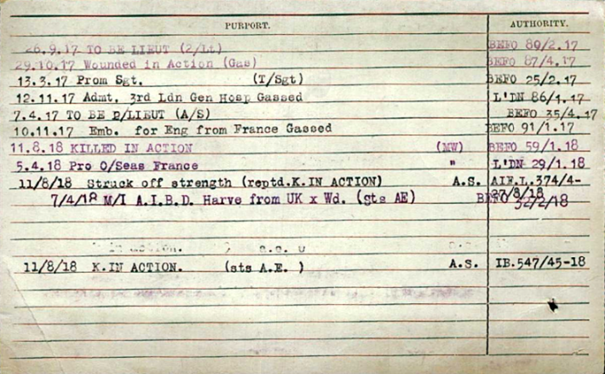 PURPORT. AUTHORITY.
26.9.17 TO BE LIEUT (2/Lt) BEFO 80/2.17
29.10.17 Wounded in Action (Gas) BEFO 87/4.17
13.3.17 Prom Sgt. (T/Sgt) BEFO 25/2.17
12.11.17 Admt. 3rd Ldn Gen Hosp Gassed L'DN 86/1.17
7.4.17 TO BE 2/LIEUT (A/S) BEFO 35/4.17
10.11.17 Emb. for Eng from France Gassed BEFO 91/1.17
11.8.18 KILLED IN ACTION (MW) BEFO 59/1.18
5.4.18 Pro O/Seas France " L'DN 29/1.18
11/8/18 Struck off strength (reptd.K.IN ACTION) A.S. AIF.L.374/4-
27/8/18
7/4/18 M/I A.I.B.D. Harve from UK x Wd. (sts AE) BEFO 32/2/18
IN ACTION.
11/8/18 K.IN ACTION. (sts A.E. ) A.S. IB.547/45-18